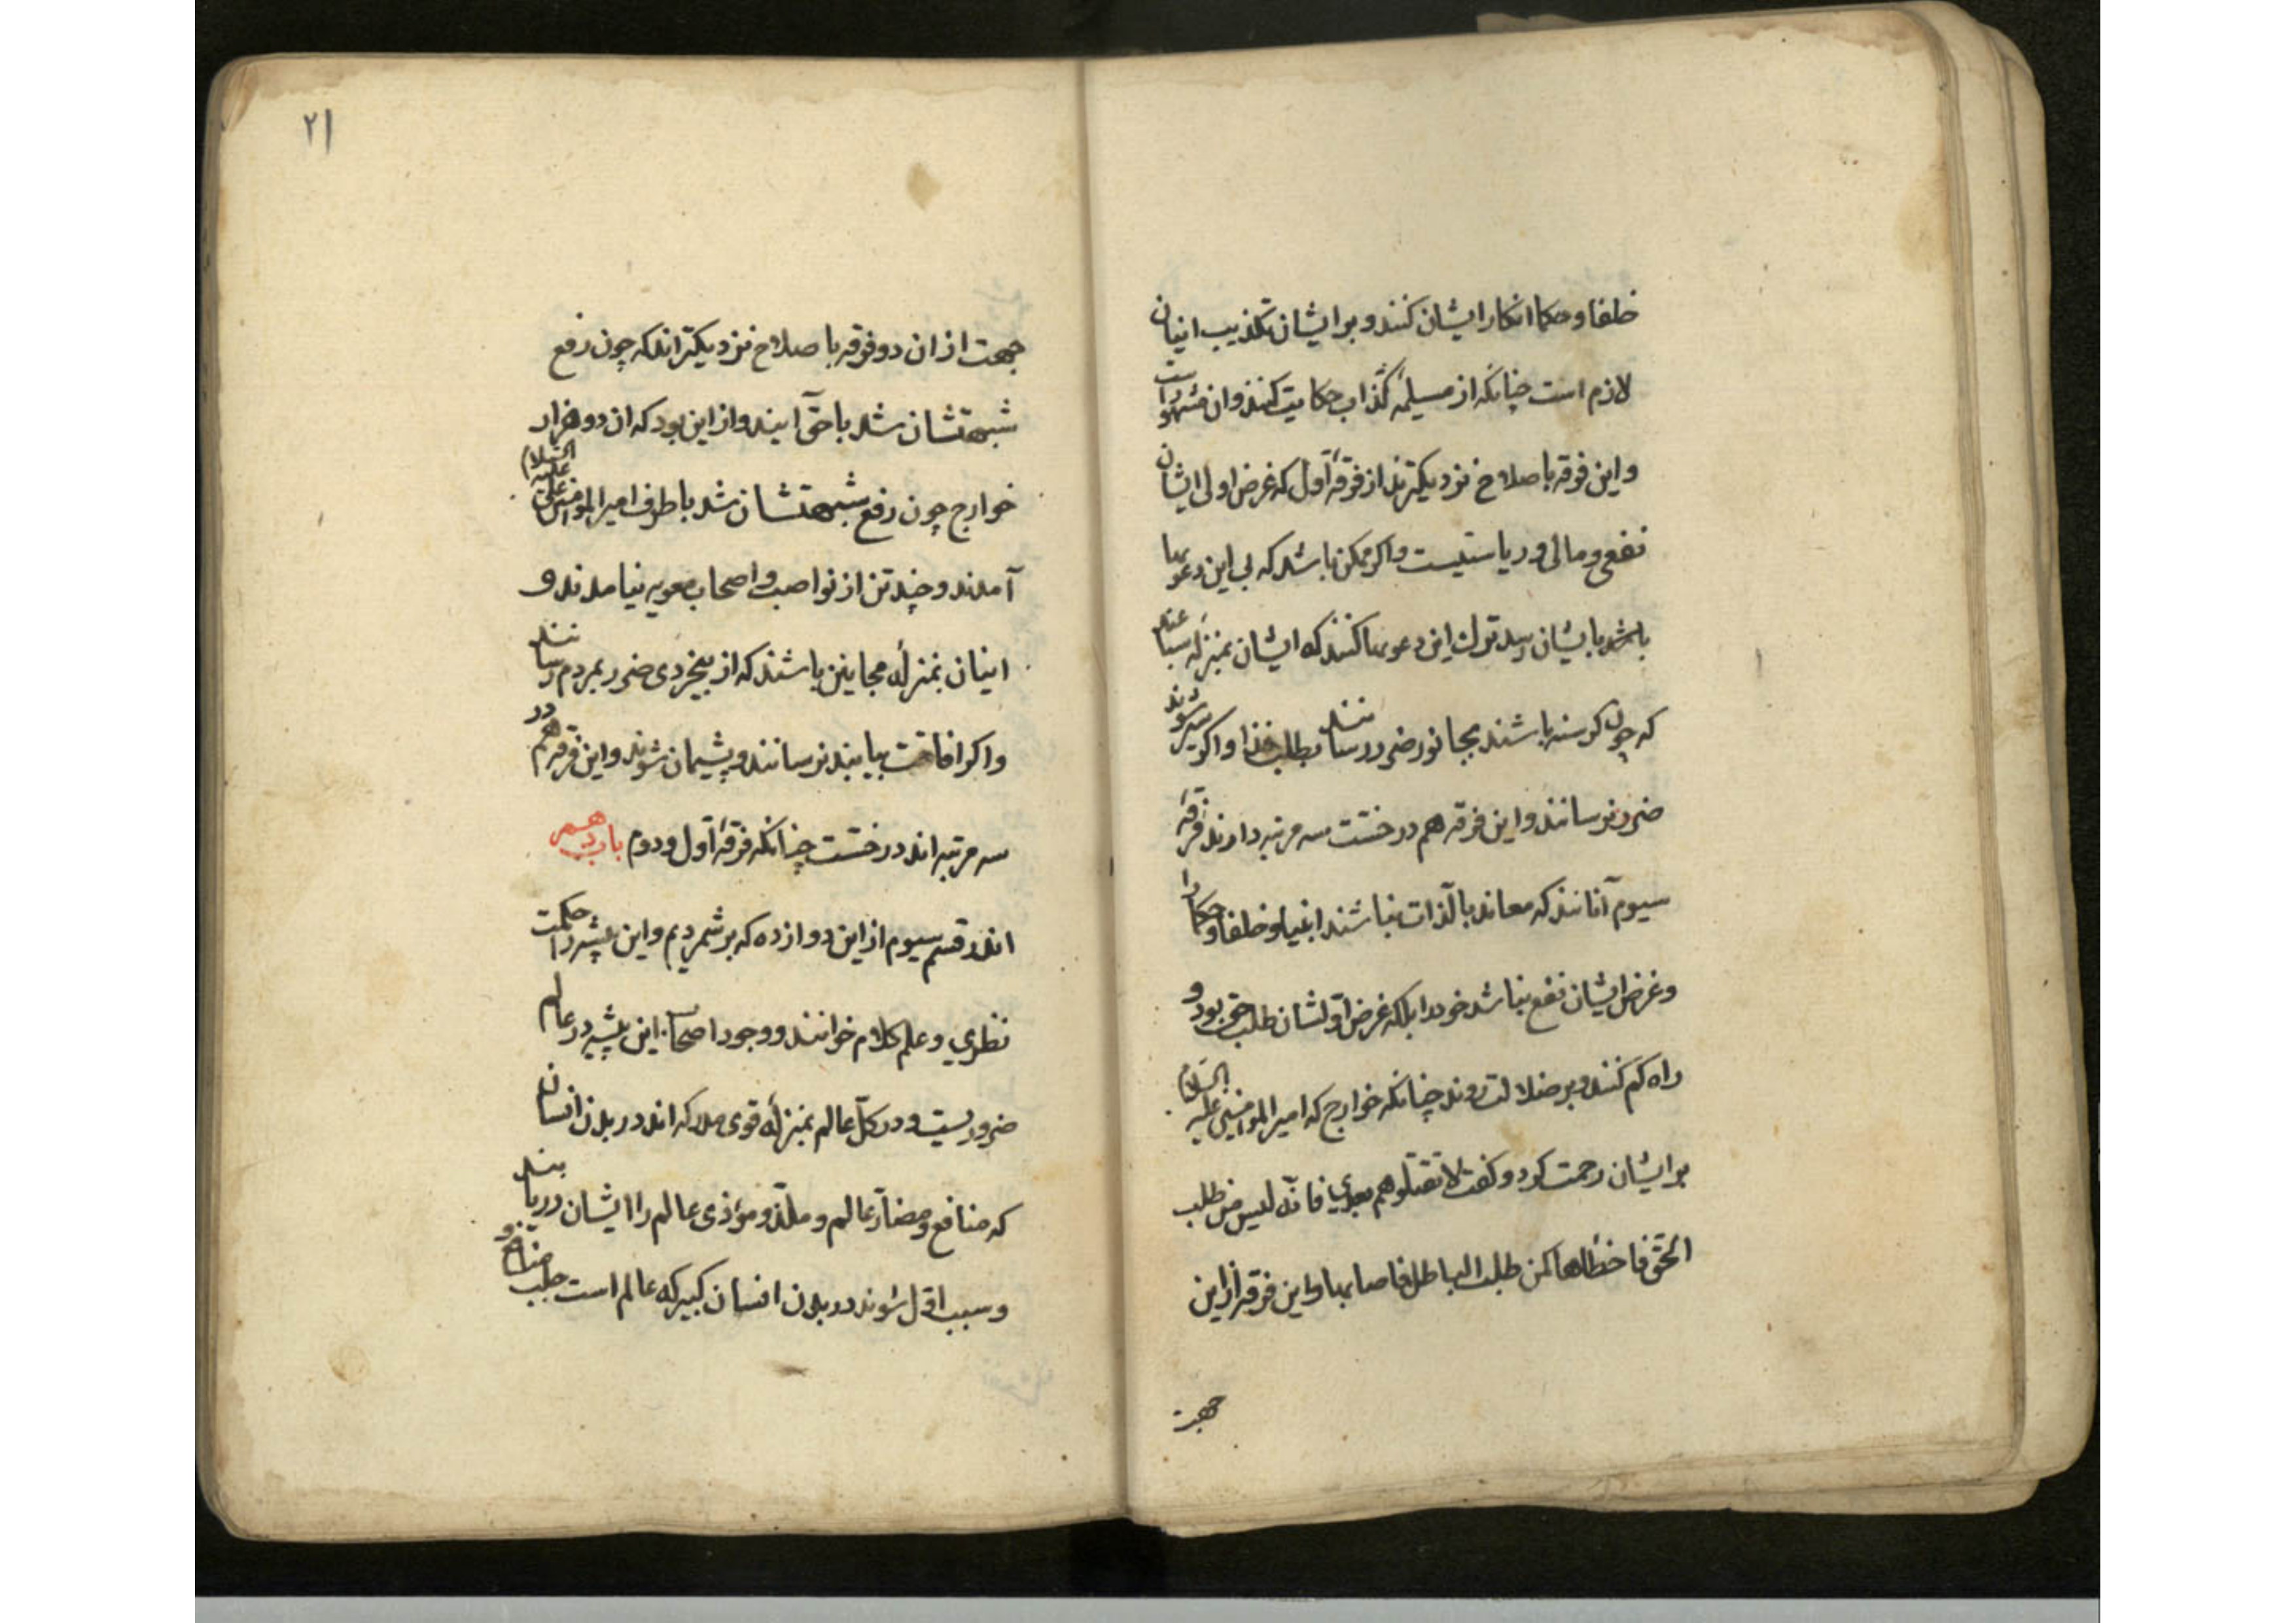 خلفا و حکما انکار ایشان کنند و بر ایشان تکذیب اینان
لازم است چنانکه از مسیلمهٔ کذاب حکایت کنند و ان مشهور است
و این فرقه باصلاح نزدیکترند از فرقهٔ اول که غرض اولی ایشان
نفعی و مالی و ریاستیست و اکر ممکن باشد که بی این دعویها
بایشان رسد ترک این دعویها کنند که ایشان بمنزلهٔ سباعند
که چون کرسنه باشند بجانور ضرر رسانند بطلب غذا و اکر سیر شوند
ضرر نرسانند و این فرقه هم در خسّت سه مرتبه دارند فرقهٔ
سیوم آنانند که معاند بالذات نباشند انبیا و خلفا و حکما را
و غرض ایشان نفع نباشد خود را بلکه غرض اولشان طلب حق بود و
راه کم کنند و بر ضلالت روند چنانکه خوارج که امیر المؤمنین علیه السلام
بر ایشان رحمت کرد و کفت لا تقتلوهم بعدی فانه لیس من طلب
الحق فاخطاها کمن طلب الباطل فاصابها و این فرقه از این
جهت
٢١
جهت از ان دو فرقه باصلاح نزدیکتراند که چون رفع
شبهتشان شد با حق آیند و از این بود که ان دو هزار
خوارج چون رفع شبهتشان شد با طرف امیر المؤمنین علی علیه السلام
آمدند و چند تن از نواصب و اصحاب معویه نیامدند و
اینان بمنزلهٔ مجانین باشند که از بیخردی ضرر بمردم رسانند
و اکر افاقت بیابند نرسانند و پشیمان شوند و این فرقه هم در
سه مرتبه اند در خسّت چنانکه فرقهٔ اول و دوم باب دهم
اندر قسم سیوم از این دوازده که بر شمردیم و این پیشه را حکمت
نظری و علم کلام خوانند و وجود اصحاب این پیشه در عالم
ضروریست و در کلّ عالم بمنزلهٔ قوی مدرکه اند در بدن انسان
که منافع و مضارّ عالم و ملذّ و مؤذی عالم را ایشان دریابند
و سبب اوّل شوند در بدن انسان کبیر که عالم است جلب منافع و